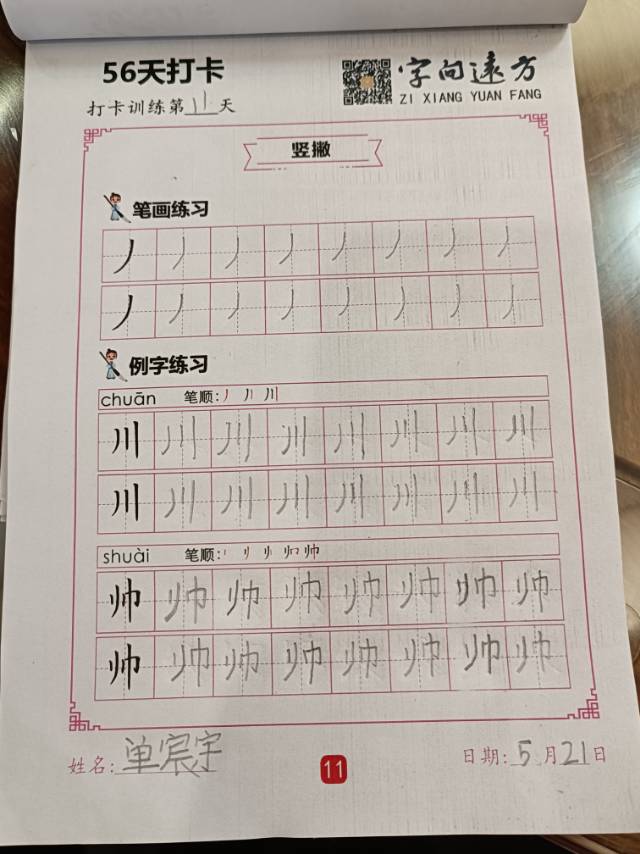 56天打卡
字向远方
打卡训练第11天
ZI XIANG YUAN FANG
竖撇
笔画练习
丿 丿 丿 丿 丿 丿 丿 丿
丿 丿 丿 丿 丿 丿 丿 丿
例字练习
chuān 笔顺:
川 川 川 川 川 川 川 川
川 川 川 川 川 川 川 川
shuài 笔顺:
帅 帅 帅 帅 帅 帅 帅 帅
帅 帅 帅 帅 帅 帅 帅 帅
姓名: 单宸宇
11
日期: 5月21日